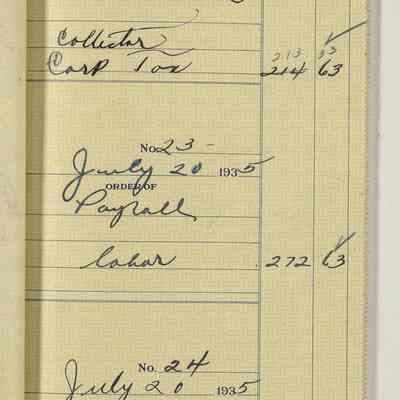 Collector
213 33
Corp Tax 214 63
No. 23 -
July 20 1935
ORDER OF
Payroll
Labor 272 63
No. 24
July 20 1935